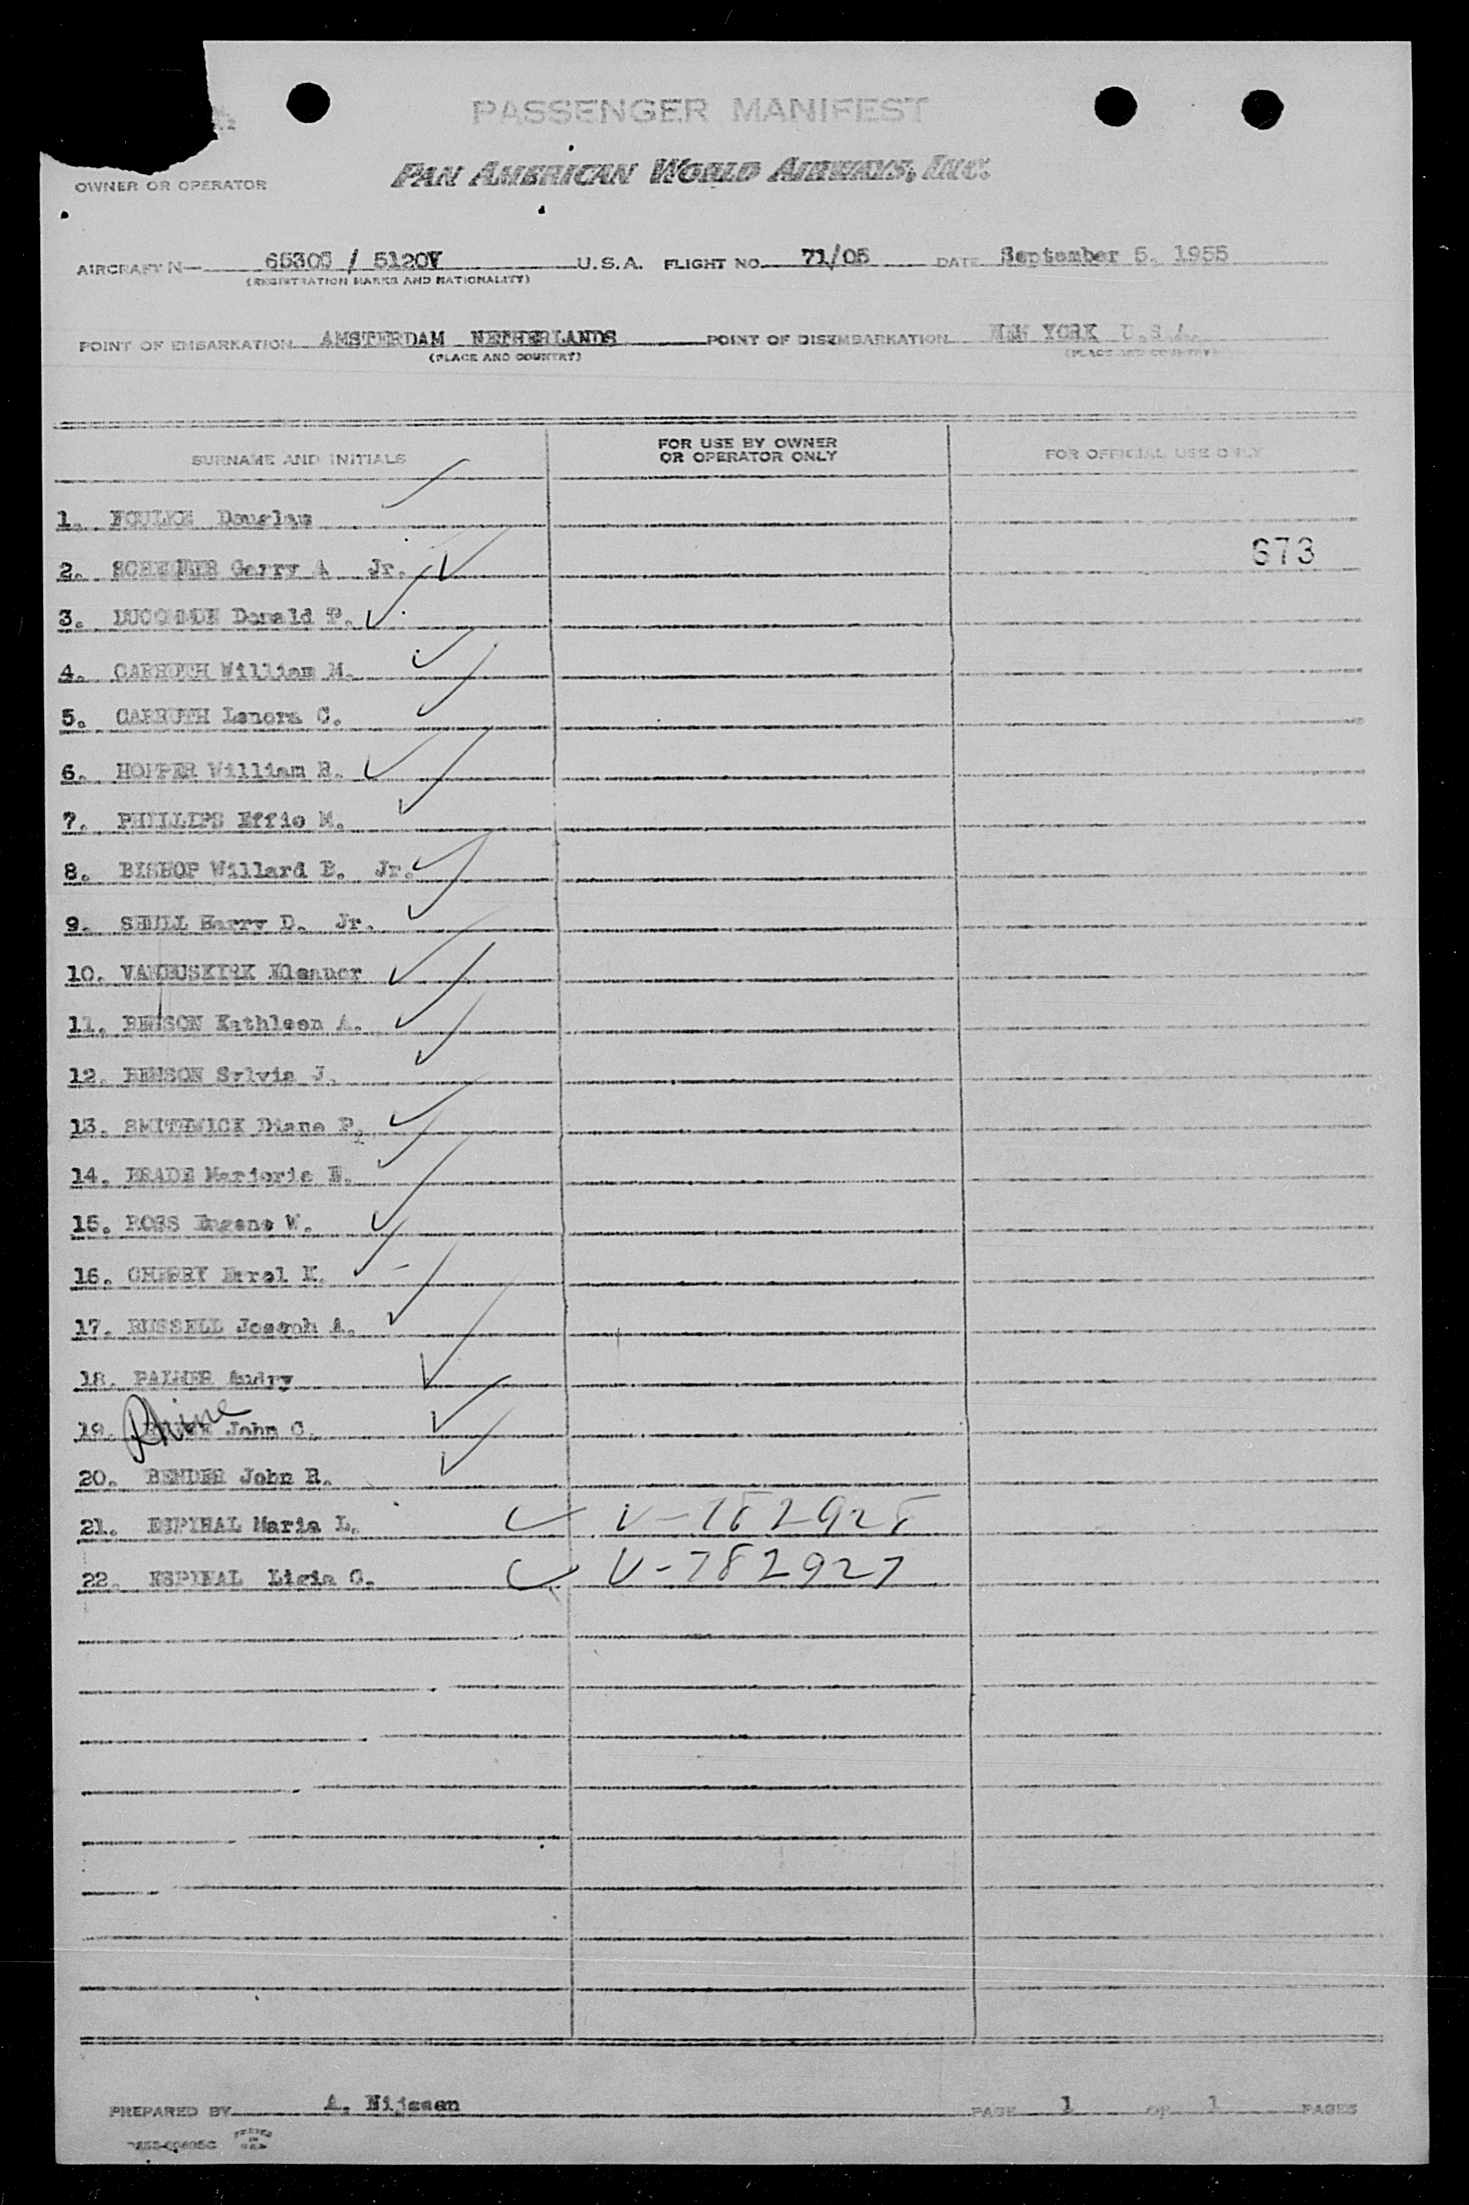 PASSENGER MANIFEST
OWNER OR OPERATOR
PAN AMERICAN WORLD AIRWAYS, INC.
AIRCRAFT N— 65305 / 5120V U.S.A. FLIGHT NO. 71/05 DATE September 5, 1955
(REGISTRATION MARKS AND NATIONALITY)
POINT OF EMBARKATION AMSTERDAM NETHERLANDS POINT OF DISEMBARKATION NEW YORK U.S.A.
(PLACE AND COUNTRY) (PLACE AND COUNTRY)
SURNAME AND INITIALS FOR USE BY OWNER OR OPERATOR ONLY FOR OFFICIAL USE ONLY
1. Douglas
2. Gerry A Jr. 673
3. DUCOMMUN Donald P.
4. CARRUTH William M.
5. CARRUTH Lenora C.
6. HOPPER William R.
7. PHILLIPS Effie M.
8. BISHOP Willard B. Jr.
9. SHULL Harry D. Jr.
10. VANBUSKIRK Eleanor
11. BENSON Kathleen A.
12. BENSON Sylvia J.
13. SMITHWICK Diane P.
14. Marjorie E.
15. ROSS Eugene W.
16. CHERRY K.
17. RUSSELL Joseph A.
18. PALMER Audry
19. Rhine John C.
20. BENDER John R.
21. Maria L. V-782928
22. ESPINAL Ligia G. V-782927
PREPARED BY A. Nijssen PAGE 1 OF 1 PAGES
PRINTED IN U.S.A.